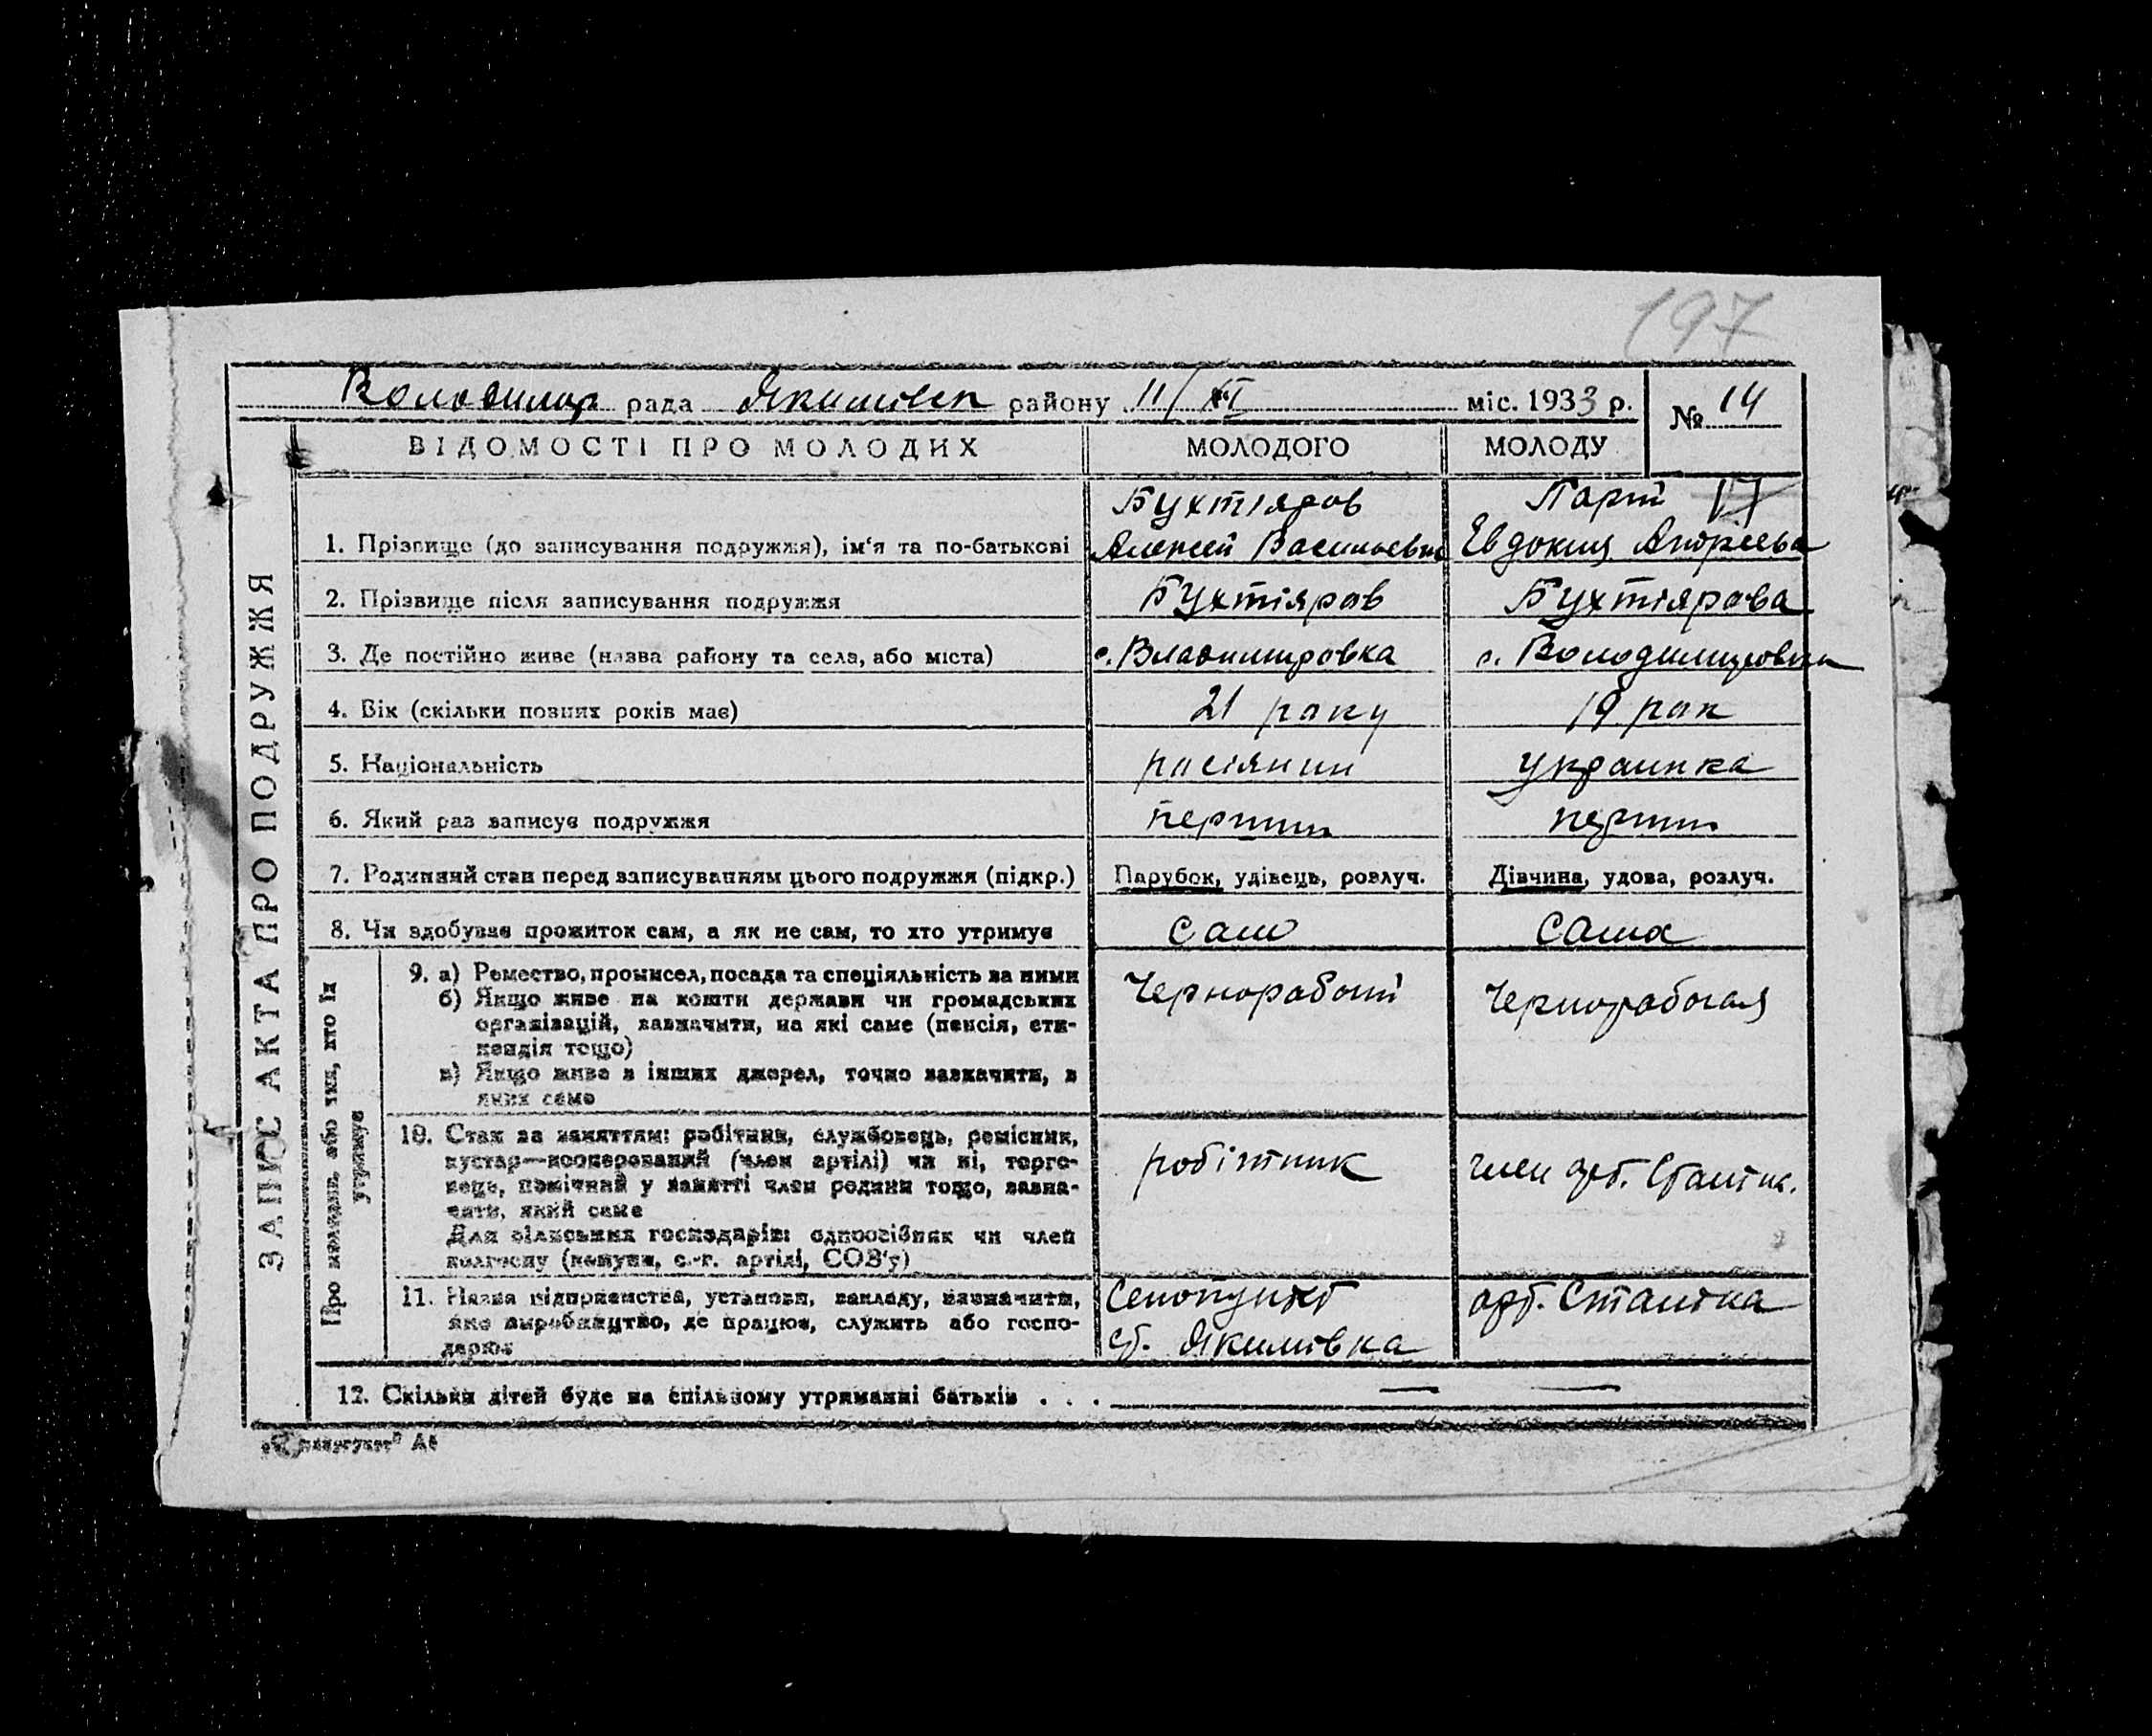 197
Володимир рада Якимовск району 11/XI міс. 1933 р. № 14
ВІДОМОСТІ ПРО МОЛОДИХ МОЛОДОГО МОЛОДУ
ЗАПИС АКТА ПРО ПОДРУЖЖЯ
Бухтіяров Парій 17
1. Прізвище (до записування подружжя), ім'я та по-батькові Алексей Васильевич Евдокия Андреева
2. Прізвище після записування подружжя Бухтіяров Бухтіярова
3. Де постійно живе (назва району та села, або міста) с. Владимировка с. Володимировка
4. Вік (скільки повних років має) 21 року 19 рок
5. Національність росіянин украинка
6. Який раз записує подружжя перший перший
7. Родинний стан перед записуванням цього подружжя (підкр.) Парубок, удівець, розлуч. Дівчина, удова, розлуч.
8. Чи здобуває прожиток сам, а як не сам, то хто утримує сам сама
Про молодих, або тих, хто їх утримує
9. а) Ремество, промисел, посада та спеціяльність за ними Чернорабочий Чернорабочая
б) Якщо живе на кошти держави чи громадських
організацій, зазначити, на які саме (пенсія, сти-
пендія тощо)
в) Якщо живе з інших джерел, точно зазначити, з
яких саме
10. Стан за заняттям: робітник, службовець, ремісник,
кустар—кооперований (член артілі) чи ні, торго-
вець, помічний у занятті член родини тощо, зазна-
чити, який саме
робітник член арт.
Для сільських господарів: одноосібник чи член
колгоспу (комуни, с.-г. артілі, СОЗ'у)
11. Назва підприємства, установи, закладу, зазначити,
яке виробництво, де працює, служить або госпо-
дарює
Сенопункт арт.
ст. Якимовка
12. Скільки дітей буде на спільному утриманні батьків . . . — —